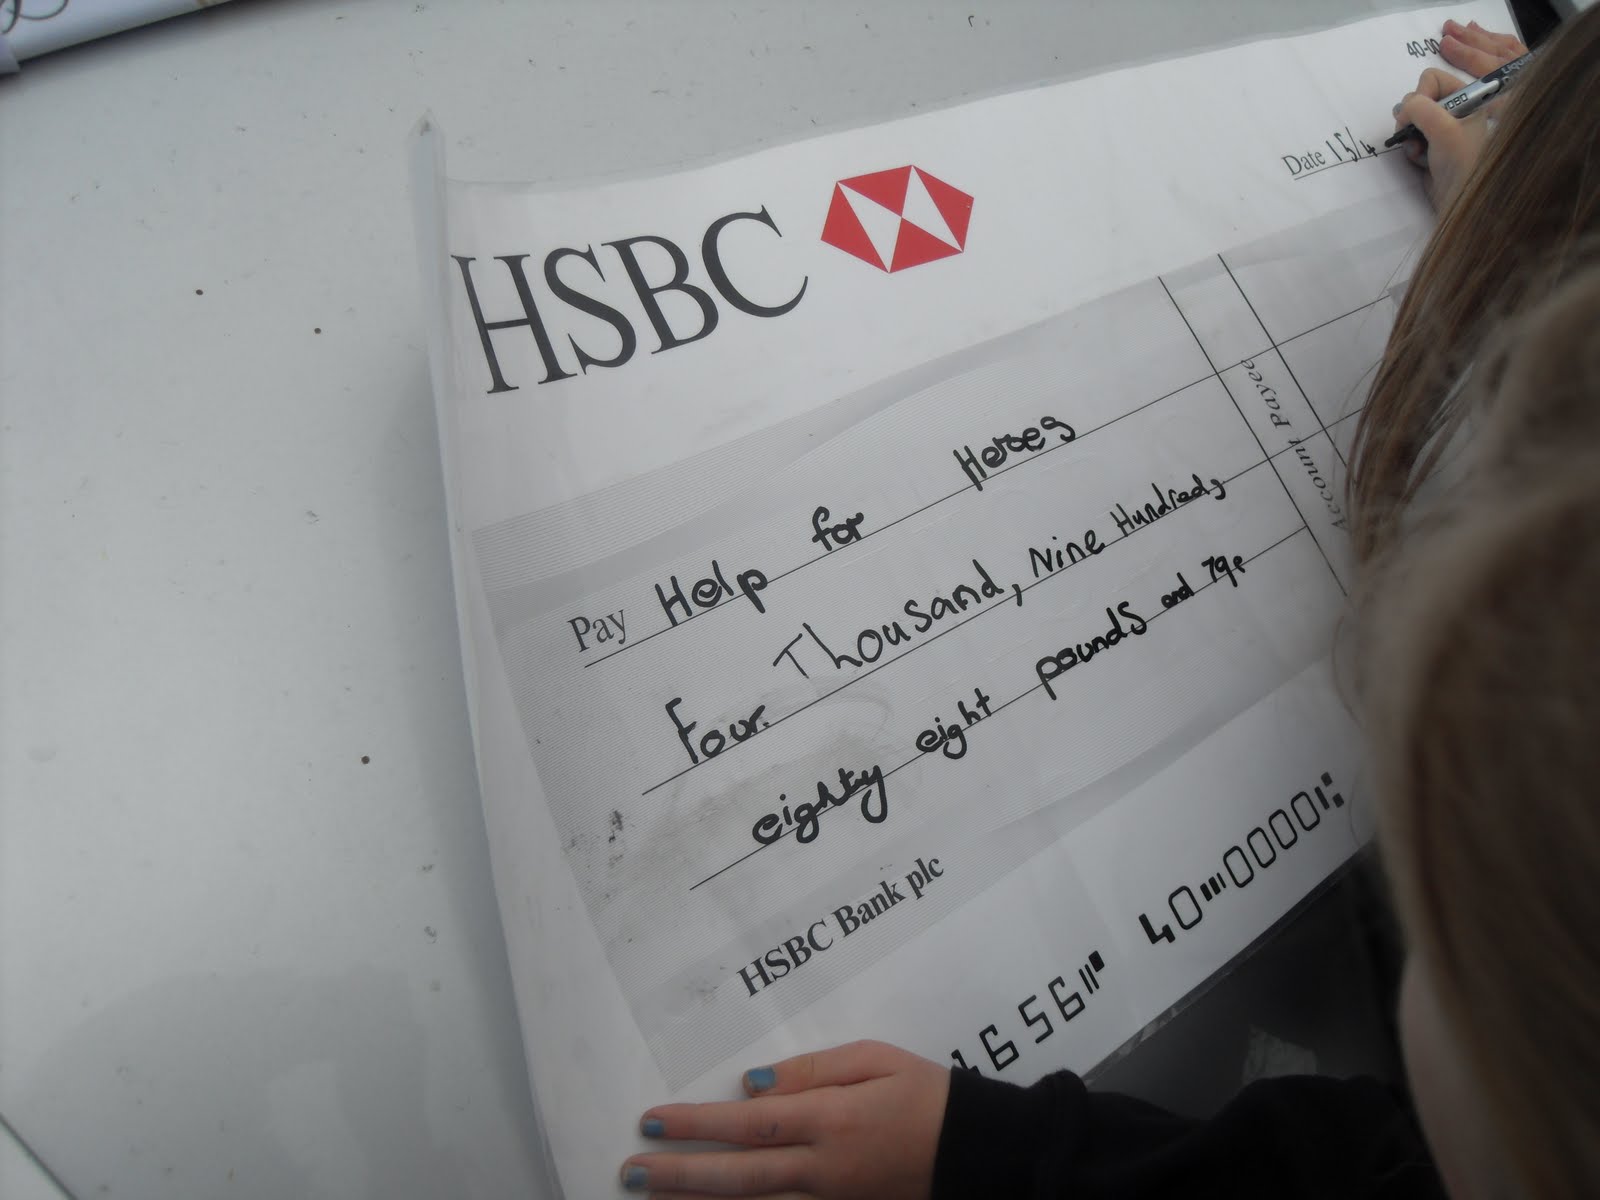 40-00
Date 15/4
HSBC
Pay Help for Heroes
Four Thousand, Nine Hundred,
eighty eight pounds and 79p
Account Payee
HSBC Bank plc
1656 40 00001